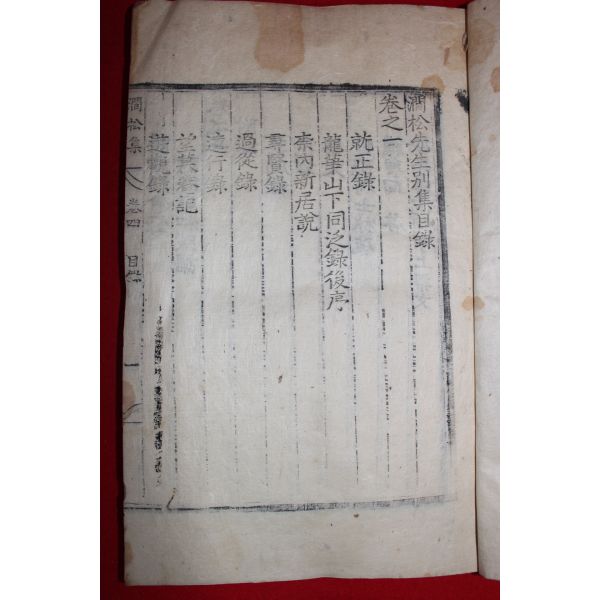 澗松先生別集目錄
卷之一
就正錄
龍華山下同泛錄後序
柰內新居說
羣賢錄
過從錄
追行錄
遊觀錄
澗松集
卷四
目錄
一